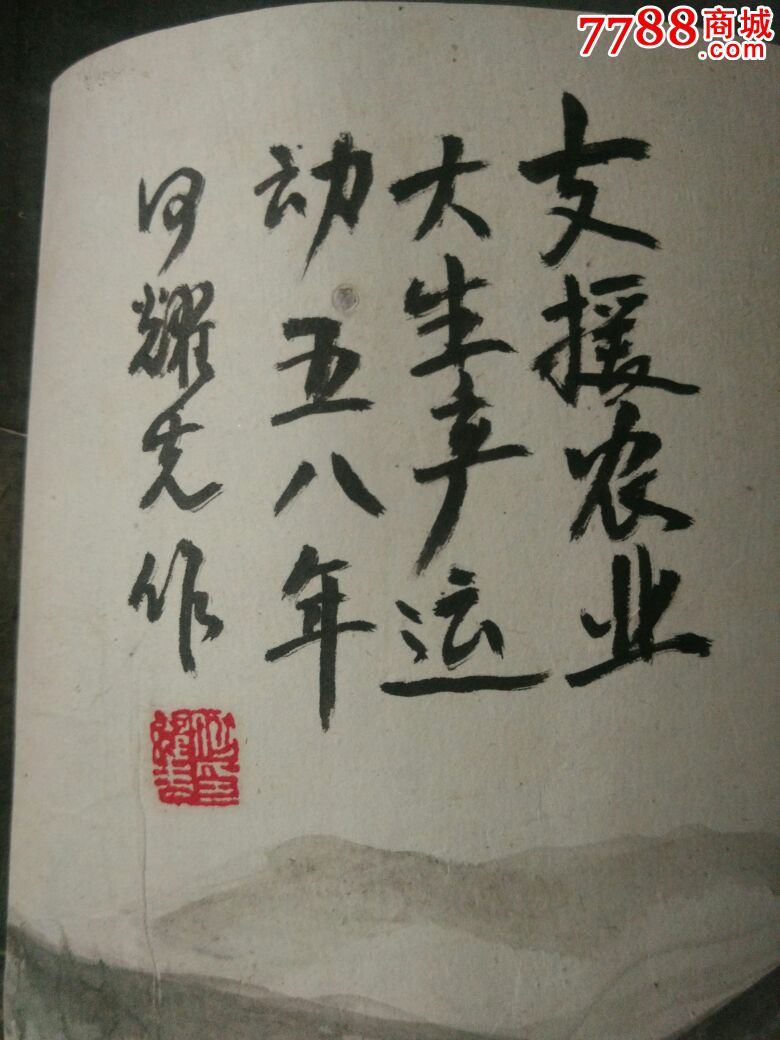 支援农业
大生产运
动五八年
何耀先作
7788商城
.com